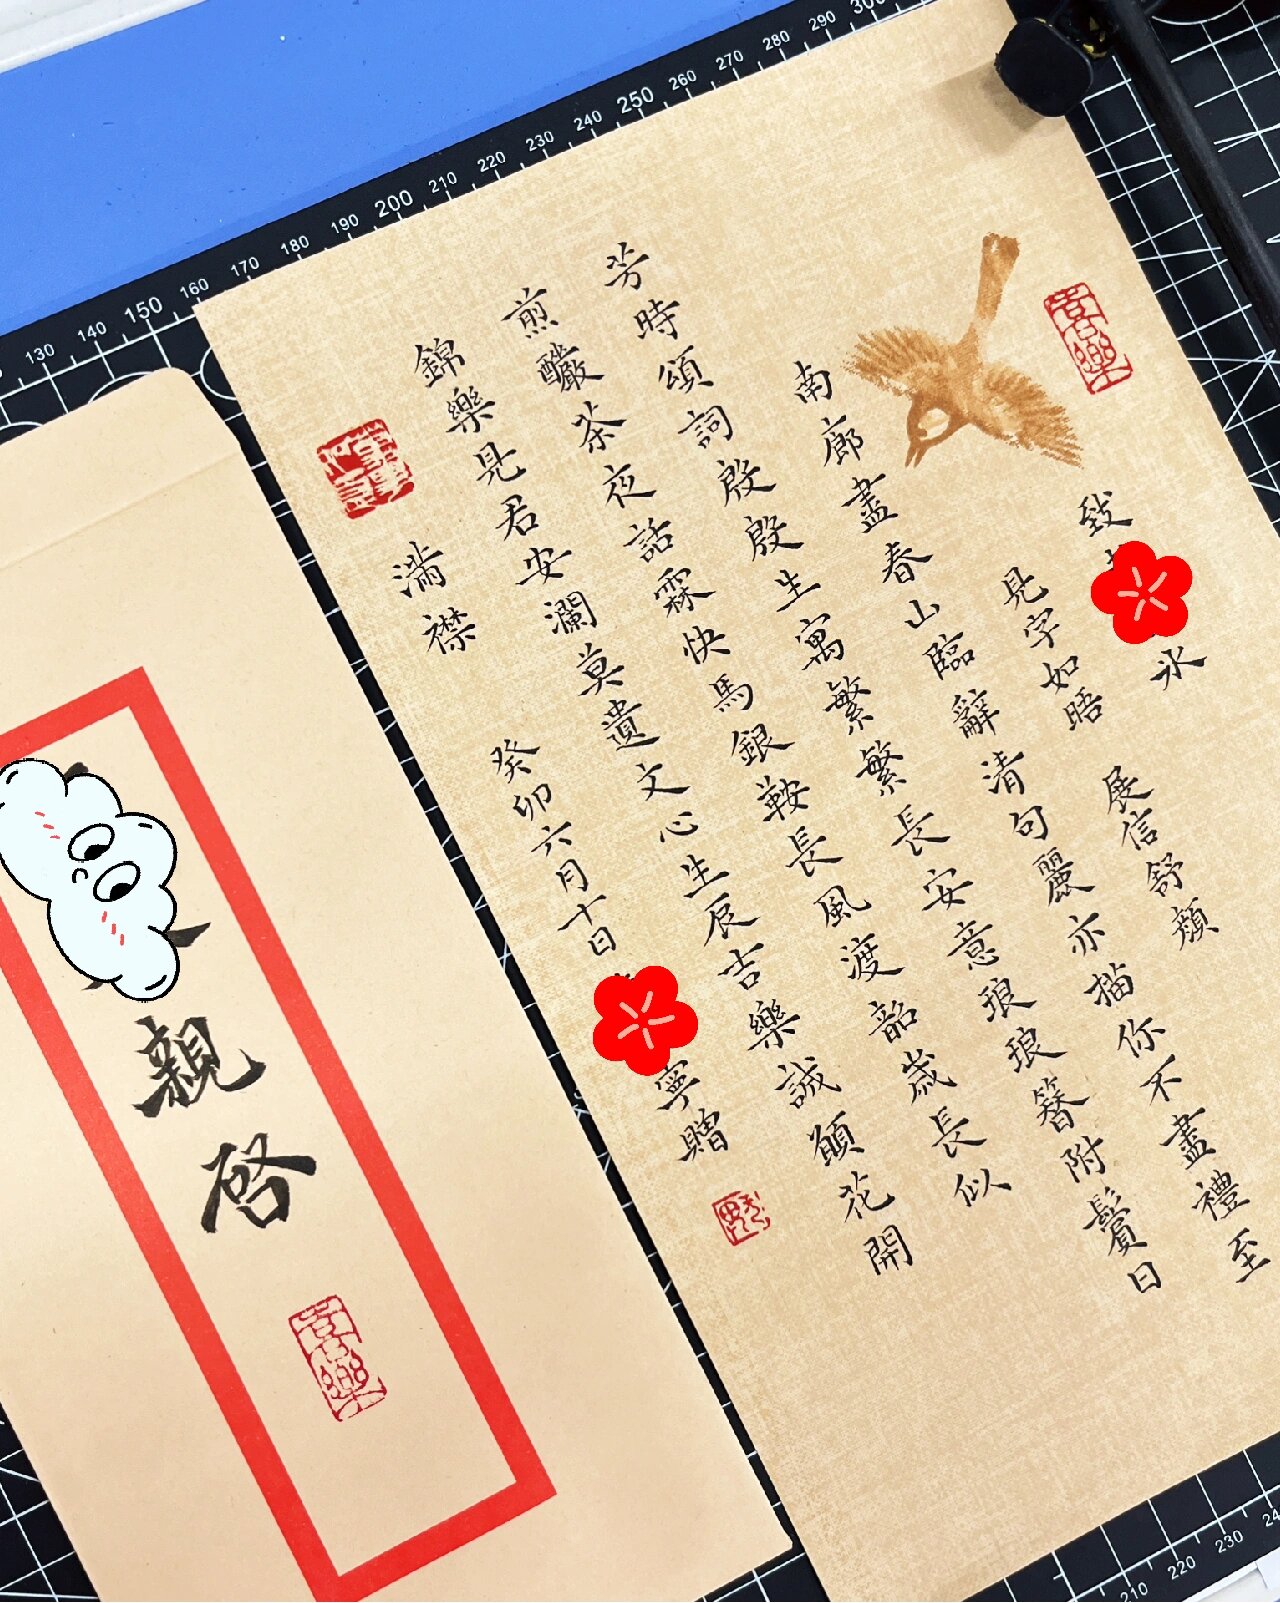 喜樂
致
氷
見字如晤 展信舒顔
南廊盡春山臨辭清句麗亦描你不盡禮至
芳時頌詞殷殷生寓繁繁長安意琅琅簪附鬢日
煎釅茶夜話霖快馬銀鞍長風渡韶歲長似
錦樂見君安瀾莫遺文心生辰吉樂誠願花開
滿襟 癸卯六月十日
寧贈
親啓
喜樂
130 140 150 160 170 180 190 200 210 220 230 240 250 260 270 280 290
210 220 230